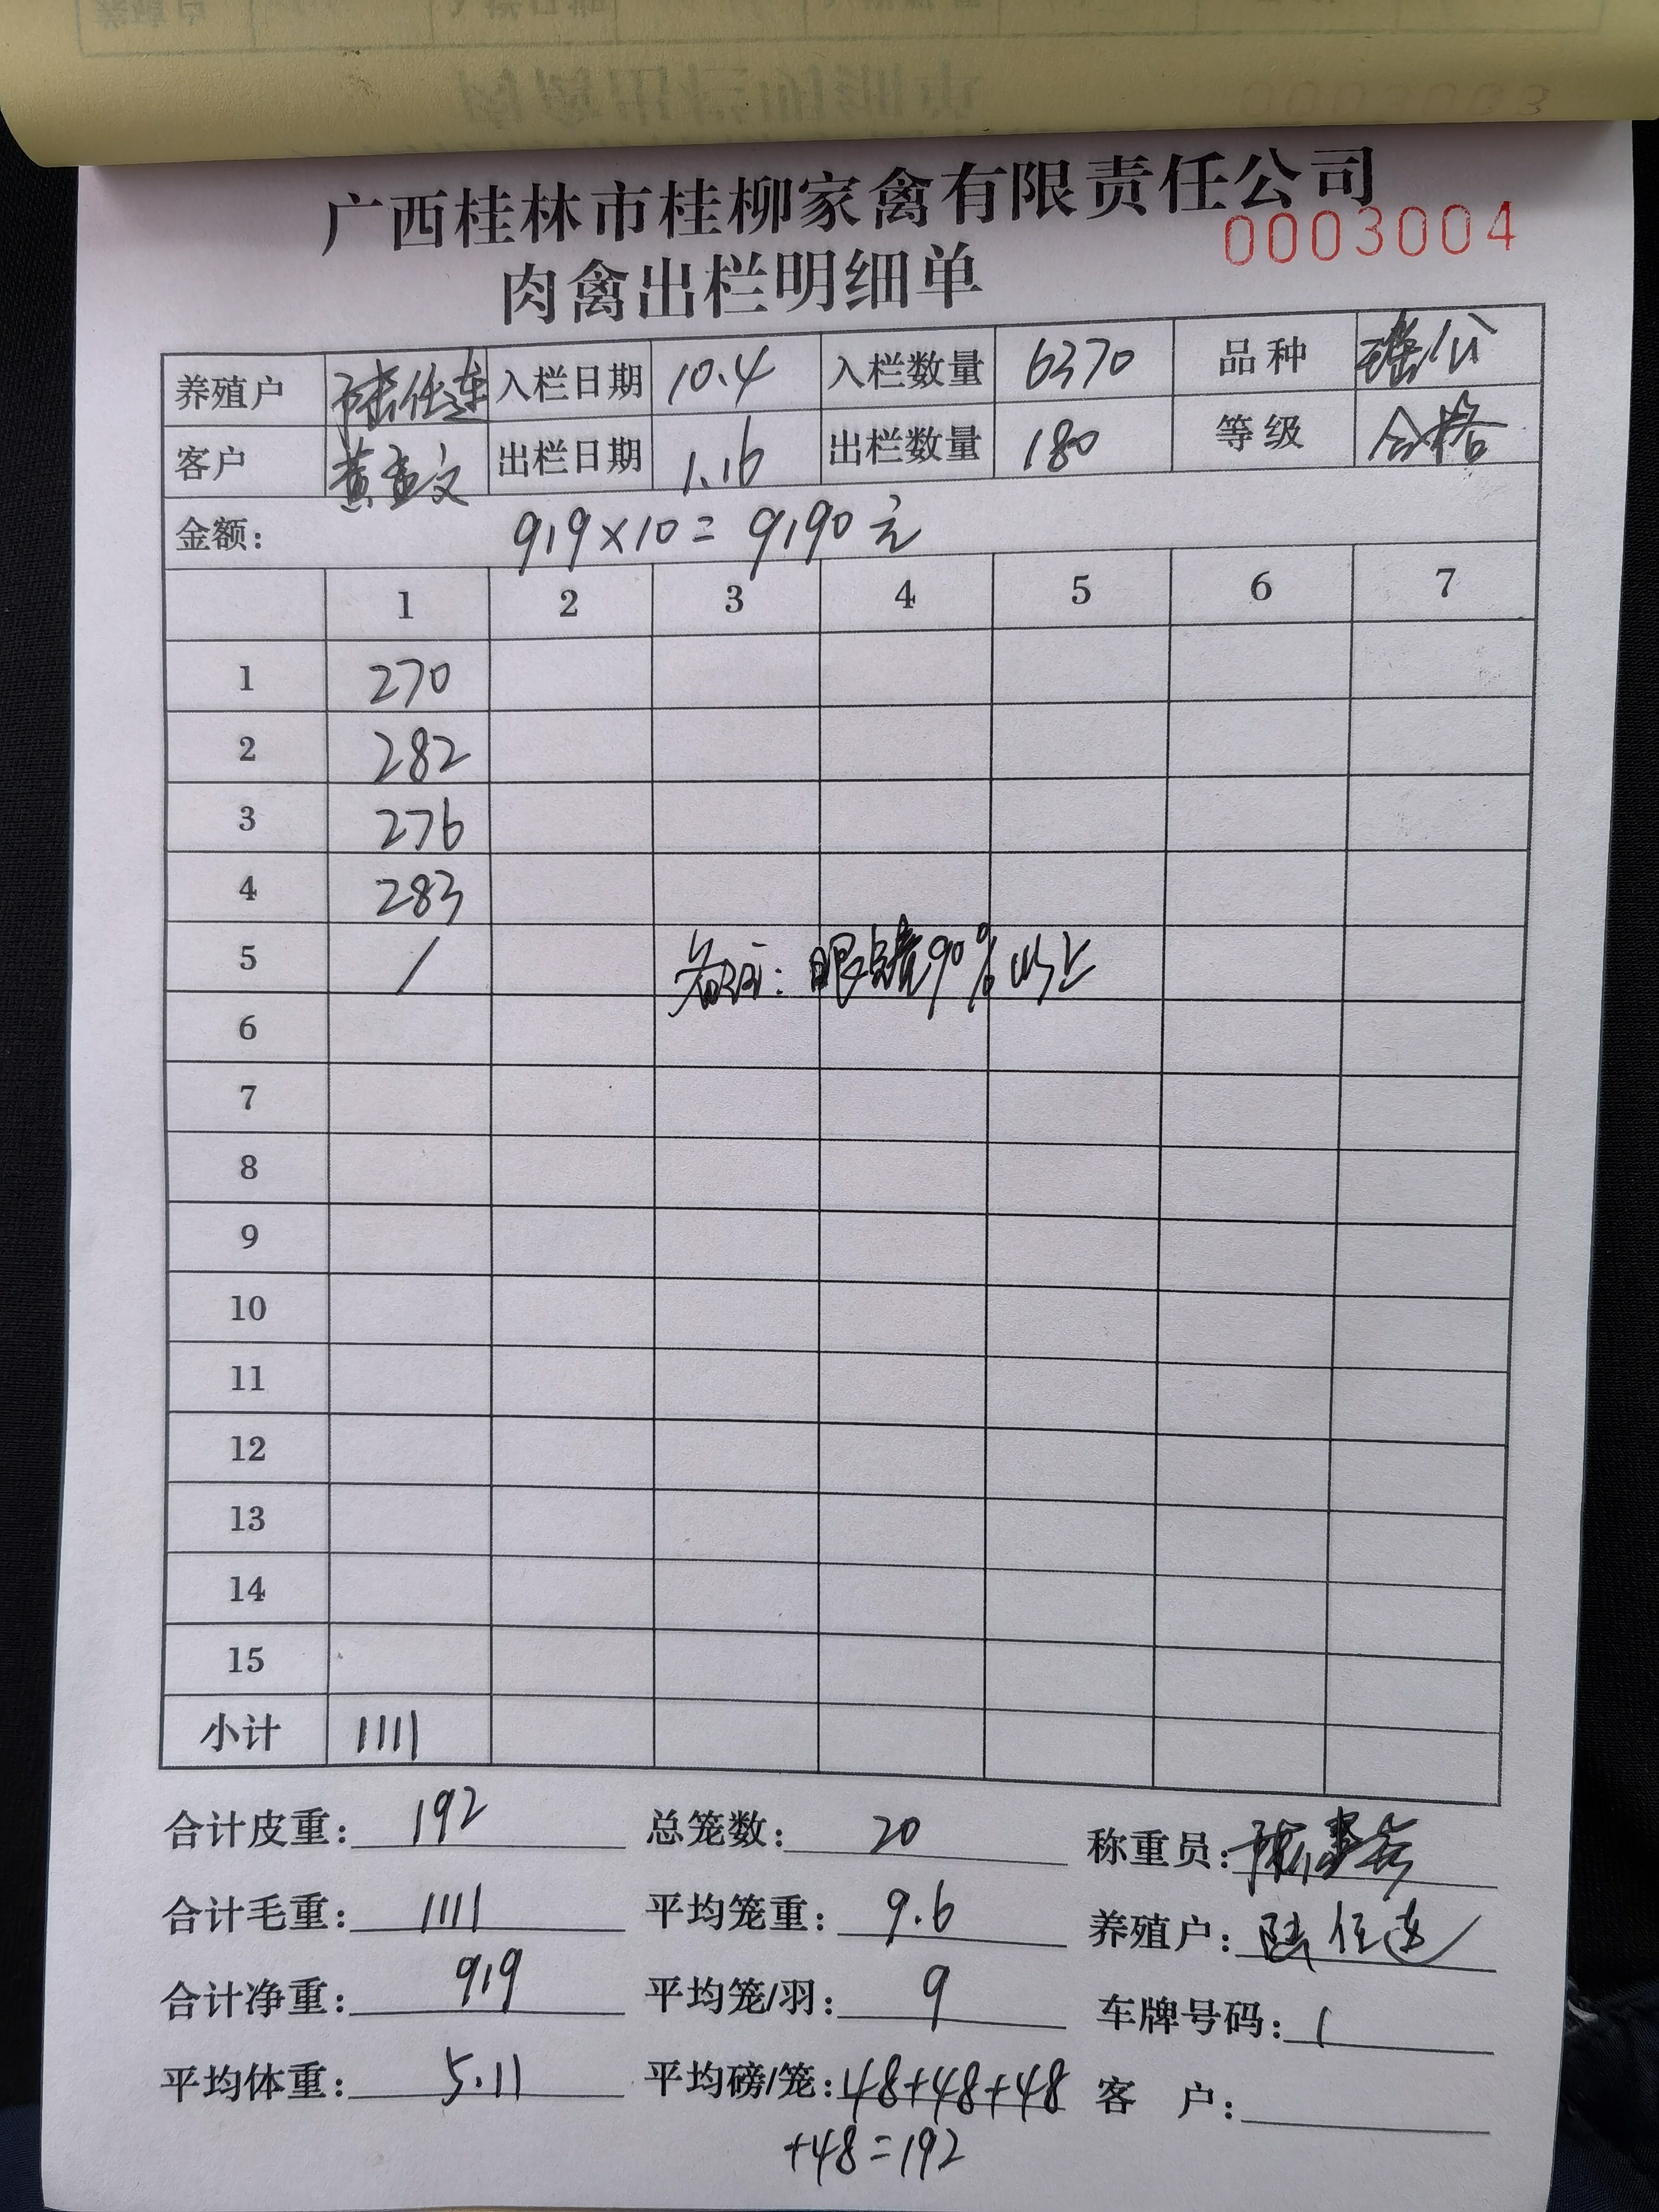 广西桂林市桂柳家禽有限责任公司
0003004
肉禽出栏明细单
养殖户 陆任连 入栏日期 10.4 入栏数量 6370 品种 瑶公
客户 黄孟文 出栏日期 1.16 出栏数量 180 等级 合格
金额: 919×10=9190元
1 2 3 4 5 6 7
1 270
2 282
3 276
4 283
5 / 备注: 90%以上
6
7
8
9
10
11
12
13
14
15
小计 1111
合计皮重: 192 总笼数: 20 称重员:
合计毛重: 1111 平均笼重: 9.6 养殖户: 陆任连
合计净重: 919 平均笼/羽: 9 车牌号码: /
平均体重: 5.11 平均磅/笼: 48+48+48 客 户:
+48=192